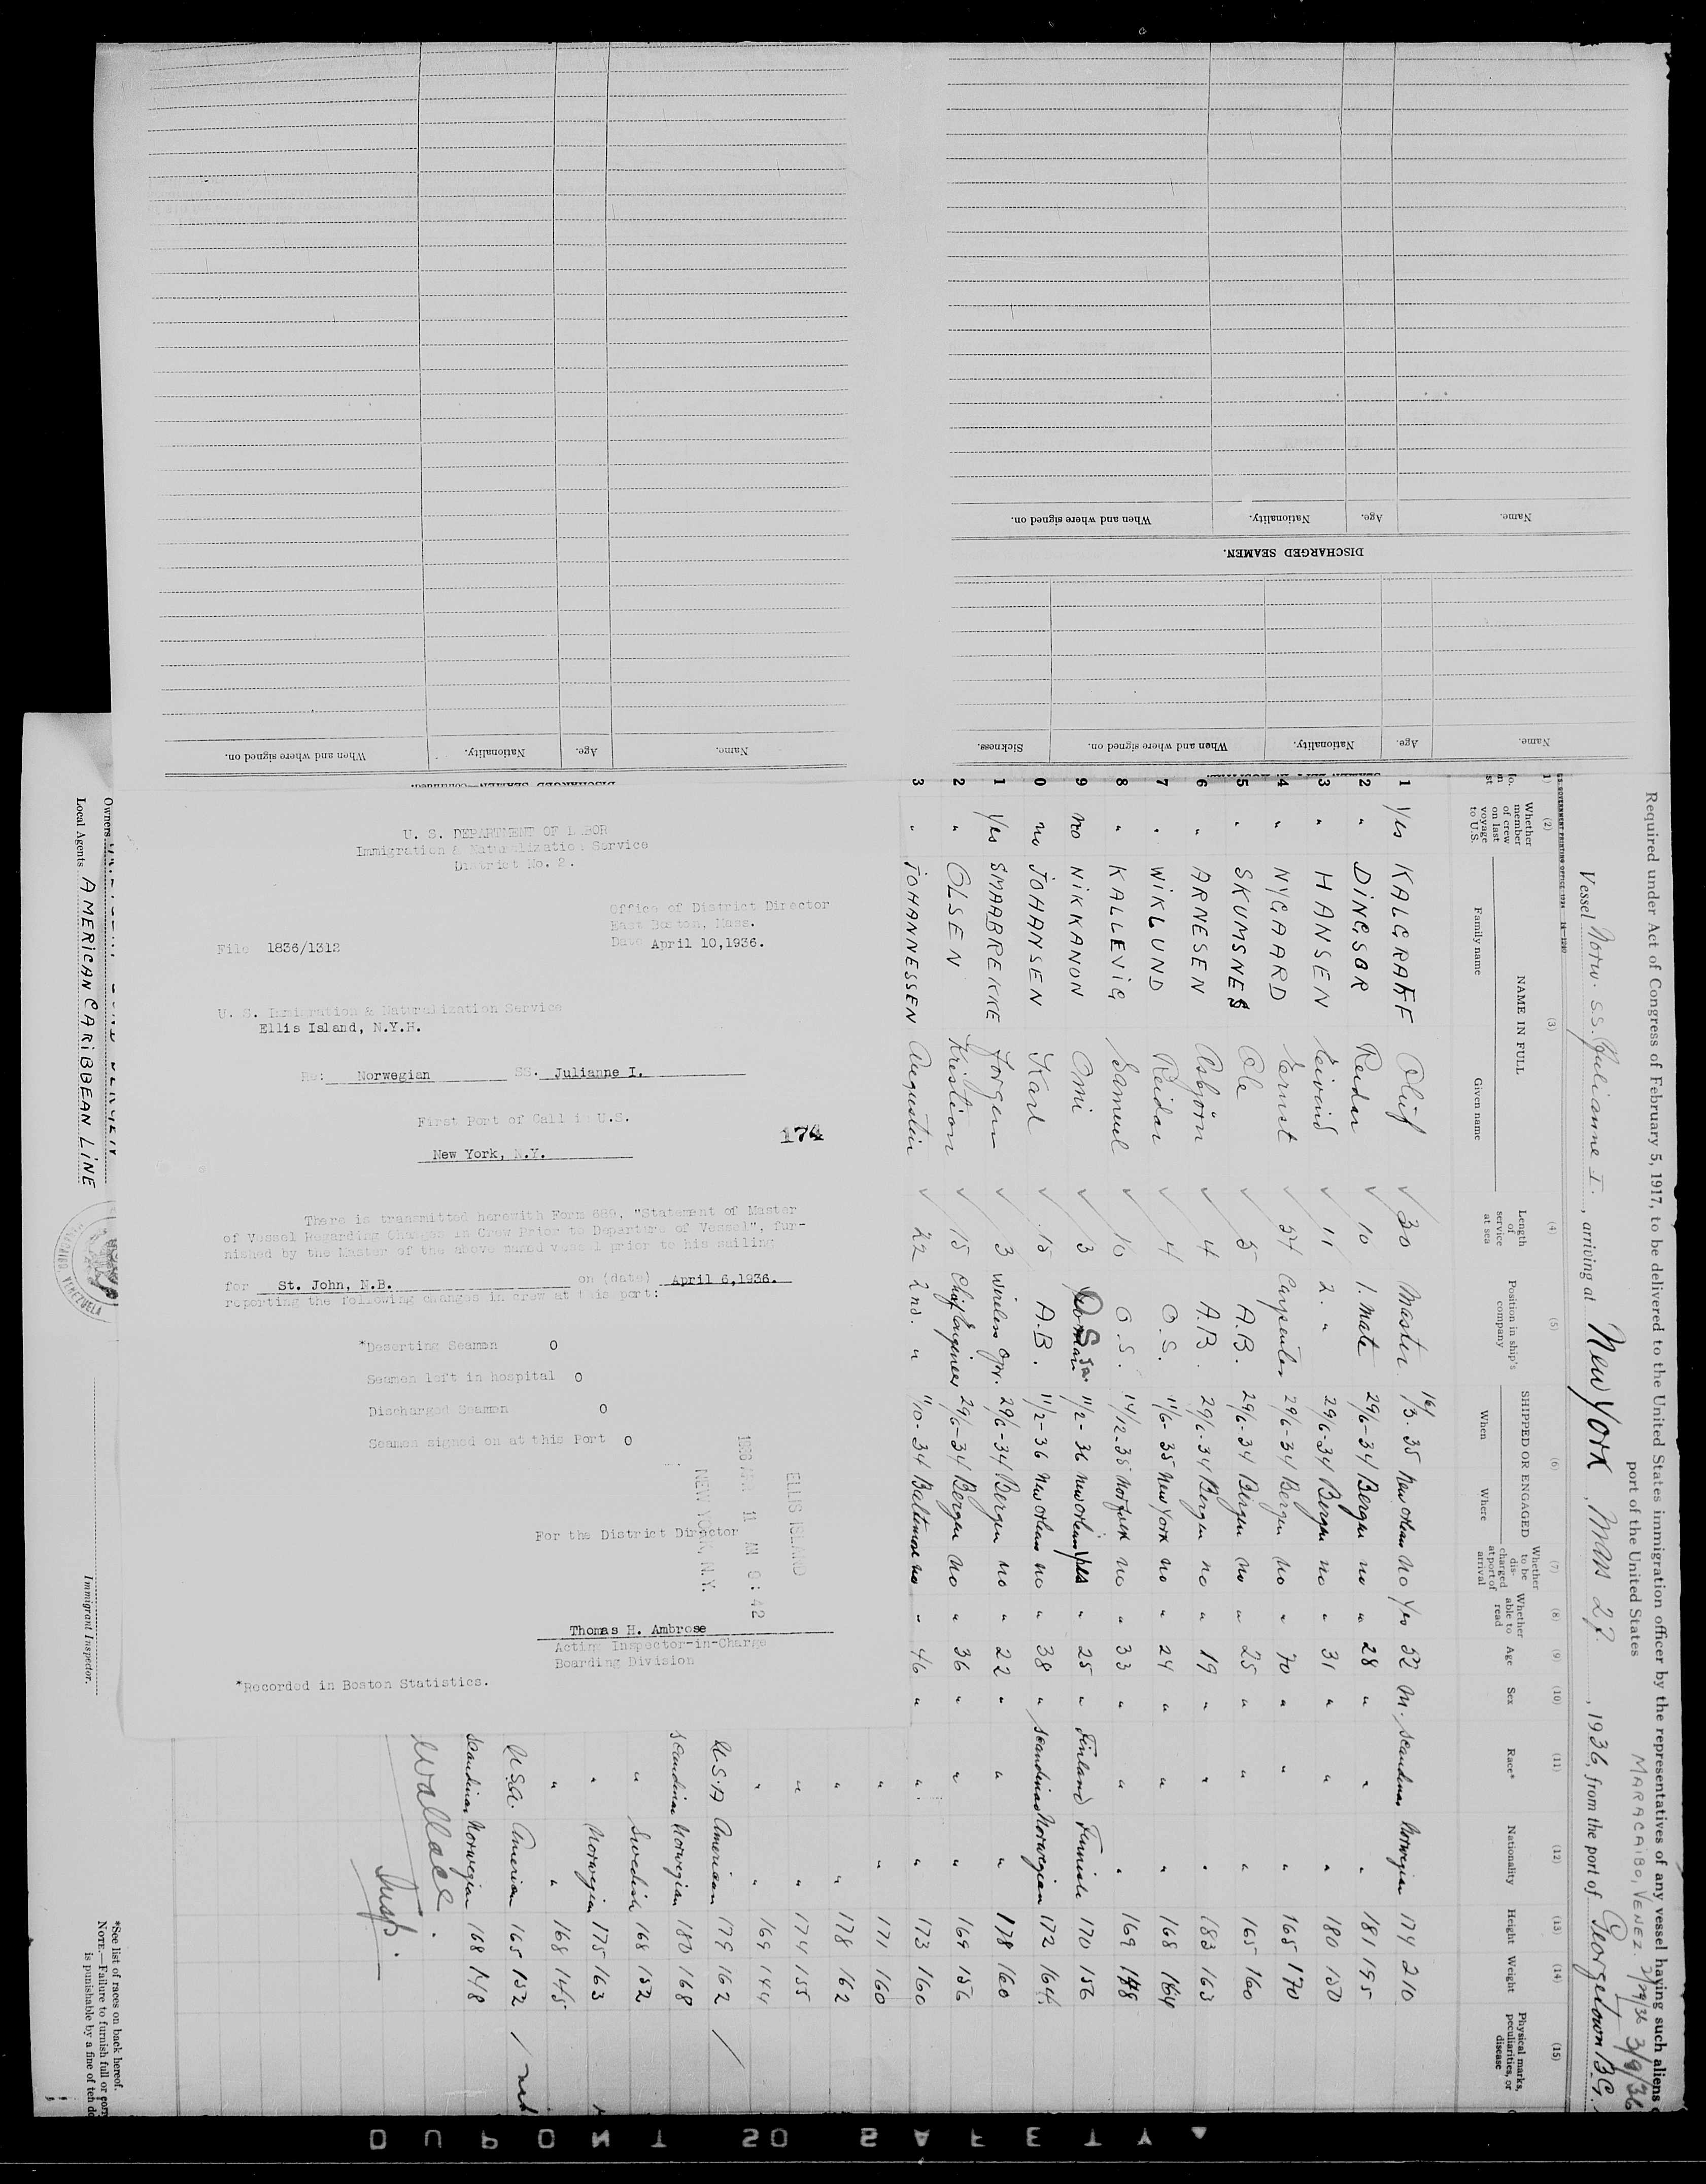 Name.
Age.
Nationality.
When and where signed on.
Name.
Age.
Nationality.
When and where signed on.
DISCHARGED SEAMEN.
Name.
Age.
Nationality.
When and where signed on.
Sickness.
DISCHARGED SEAMEN—Continued.
U. S. DEPARTMENT OF LABOR
Immigration & Naturalization Service
District No. 2.
Office of District Director
East Boston, Mass.
Date April 10,1936.
File 1836/1312
U. S. Immigration & Naturalization Service
Ellis Island, N.Y.H.
Re: Norwegian SS. Julianne I.
First Port of Call in U.S.
174
New York, N.Y.
There is transmitted herewith Form 689, "Statement of Master
of Vessel Regarding Changes in Crew Prior to Departure of Vessel", fur-
nished by the Master of the above named vessel prior to his sailing
for St. John, N.B. on (date) April 6,1936.
reporting the following changes in crew at this port:
*Deserting Seamen 0
Seamen left in hospital 0
Discharged Seamen 0
Seamen signed on at this Port 0
ELLIS ISLAND
11 AM 9:42
NEW YORK, N.Y.
For the District Director
Thomas H. Ambrose
Acting Inspector-in-Charge
Boarding Division
*Recorded in Boston Statistics.
Required under Act of Congress of February 5, 1917, to be delivered to the United States immigration officer by the representatives of any vessel having such aliens
port of the United States MARACAIBO, VENEZ. 2/29/36 3/9/36
Vessel Norw. S.S. Julianne I., arriving at New York, Mars 27., 1936, from the port of Georgetown B.G.
(2) (3) (4) (5) (6) (7) (8) (9) (10) (11) (12) (13) (14) (15)
Whether member of crew on last voyage to U.S.
NAME IN FULL
Family name
Given name
Length of service at sea
Position in ship's company
SHIPPED OR ENGAGED
When
Where
Whether to be discharged at port of arrival
Whether able to read
Age
Sex
Race*
Nationality
Height
Weight
Physical marks, peculiarities, or disease
1 Yes KALGRAFF Oluf 30 Master 16/3. 35 New Orleans no Yes 52 M. Scandinav Norwegian 174 210
2 " DINGSOR Reidar 10 1. Mate 29/6-34 Bergen no " 28 " " " 181 195
3 " HANSEN Eivind 11 2. " 29/6-34 Bergen no " 31 " " " 180 150
4 " NYGAARD Ernst 54 Carpenter 29/6-34 Bergen no " 70 " " " 165 170
5 " SKUMSNES Ole 5 A.B. 29/6-34 Bergen no " 25 " " " 165 160
6 " ARNESEN Asbjörn 4 A.B. 29/6-34 Bergen no " 19 " " " 183 163
7 " WIKLUND Reidar 4 O.S. 11/6-35 New York no " 24 " " " 168 164
8 " KALLEVIG Samuel 10 O.S. 14/12-35 Norfolk no " 33 " " " 169 148
9 no NIKKANON Omi 3 O.S. 11/2-36 New Orleans " 25 " Finland Finnish 170 156
0 no JOHANSEN Karl 15 A.B. 11/2-36 New Orleans no " 38 " Scandinav Norwegian 172 164
1 Yes SMAABREKKE Jorgen 3 Wireless Opr. 29/6-34 Bergen no " 22 " " " 178 160
2 " OLSEN Kristian 15 Chief Engineer 29/6-34 Bergen no " 36 " " " 169 156
3 " JOHANNESSEN Augustin 22 2nd. " 1/10-34 Baltimore no " 46 " " " 173 160
" " 171 160
" " 178 162
" " 174 155
" " 169 144
U.S.A American 179 162
Scandinav Norwegian 180 168
" Swedish 168 152
" Norwegian 175 163
" " 168 145
U.S.A. American 165 152
Scandinav Norwegian 168 148
Wallace
Insp.
Owners
Local Agents AMERICAN CARIBBEAN LINE
Immigrant Inspector.
*See list of races on back hereof.
NOTE.—Failure to furnish full or
is punishable by a fine of ten
DUPONT SO SAFETY